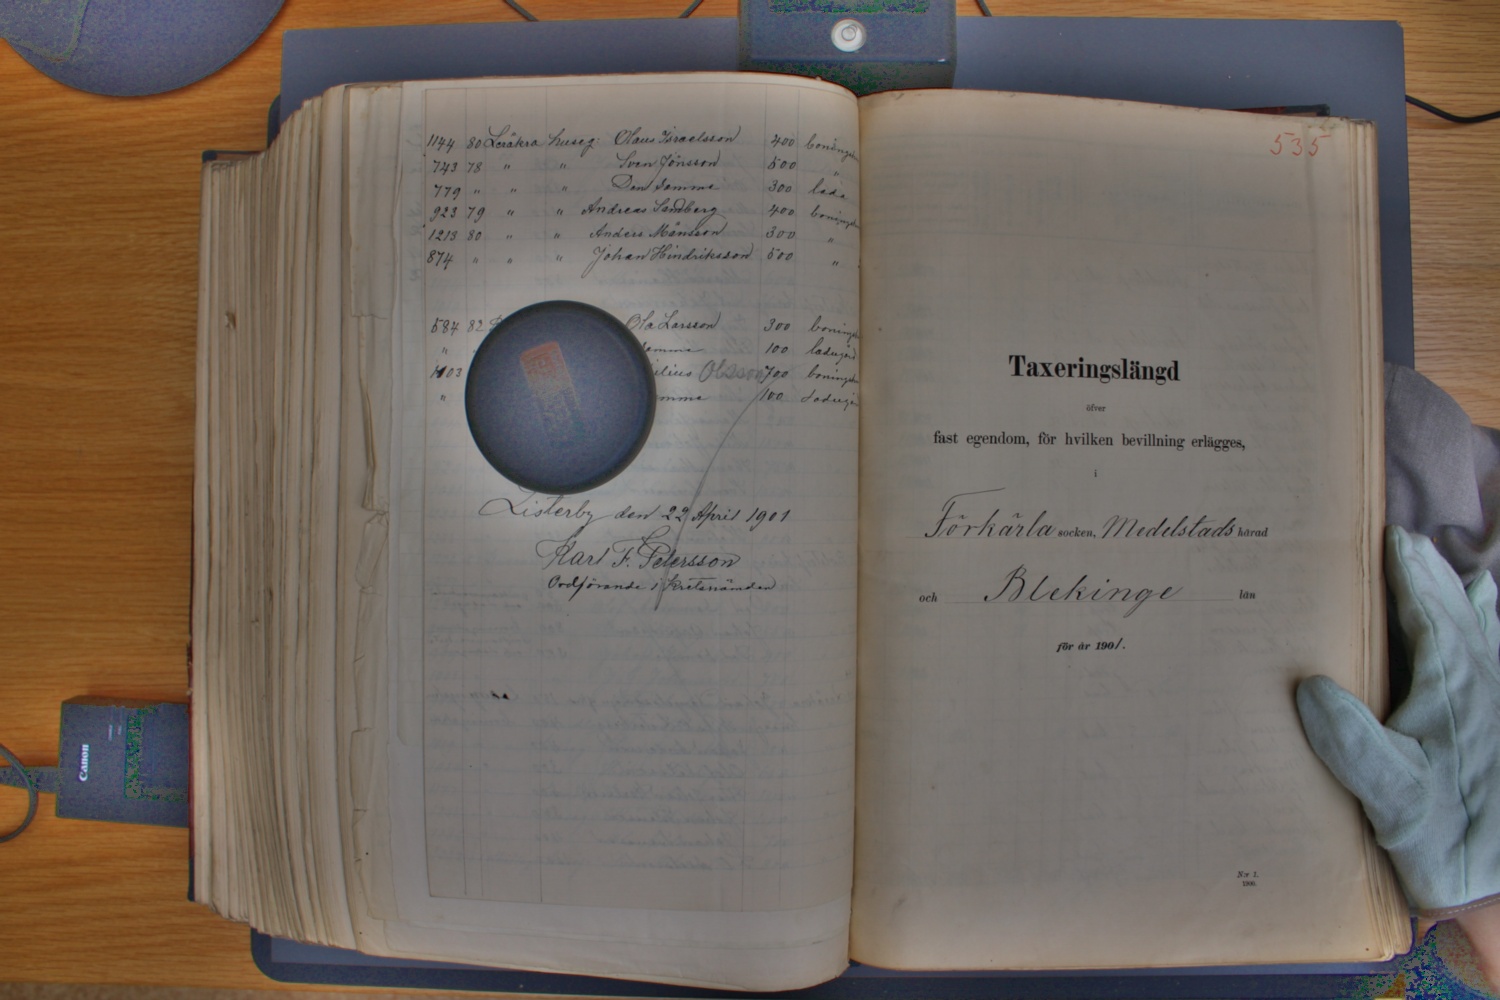 1144 80 Leråkra huseg: Olaus Israelsson 400
743 78 " " Sven Jönsson 500 "
779 " " " Den samme 300 lada
923 79 " " Andreas Sandberg 400
1213 80 " " Anders Månsson 300 "
874 " " " Johan Hindriksson 500 "
584 82 Ola Larsson 300
" samme 100 ladugård
1103 Olsson 700
" 100
Listerby den 22 April 1901
Karl F. Petersson
Ordförande i Kretsnämnden
535
Taxeringslängd
öfver
fast egendom, för hvilken bevillning erlägges,
i
Förkärla socken, Medelstads härad
och Blekinge län
för år 1901.
N:r 1.
1900.
Canon